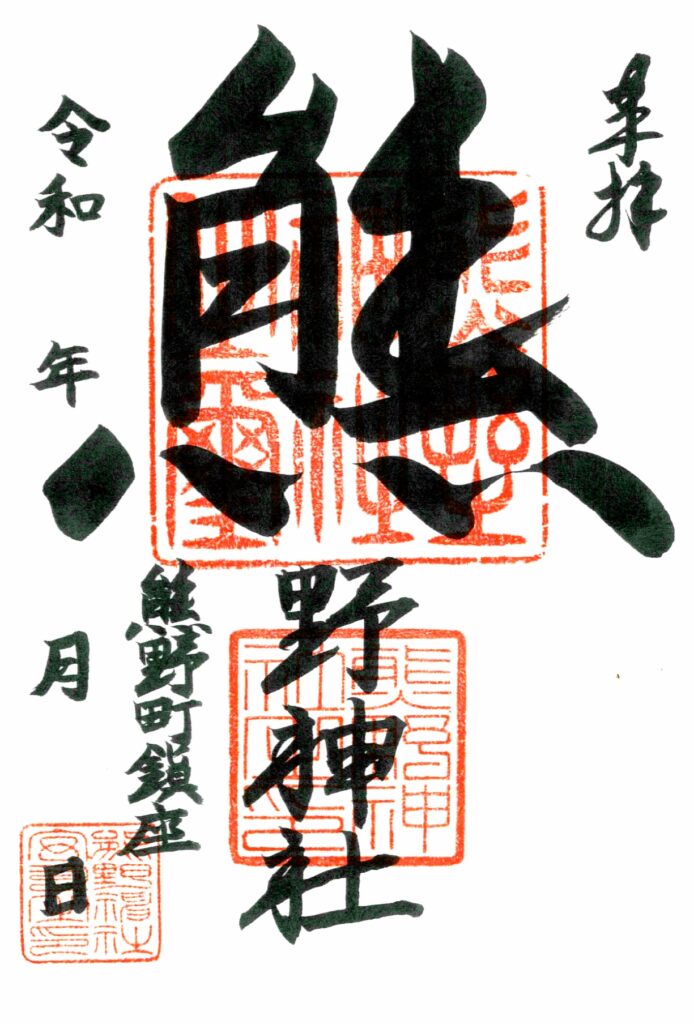 奉拝
熊野神社
熊野町鎮座
令和 年 月 日